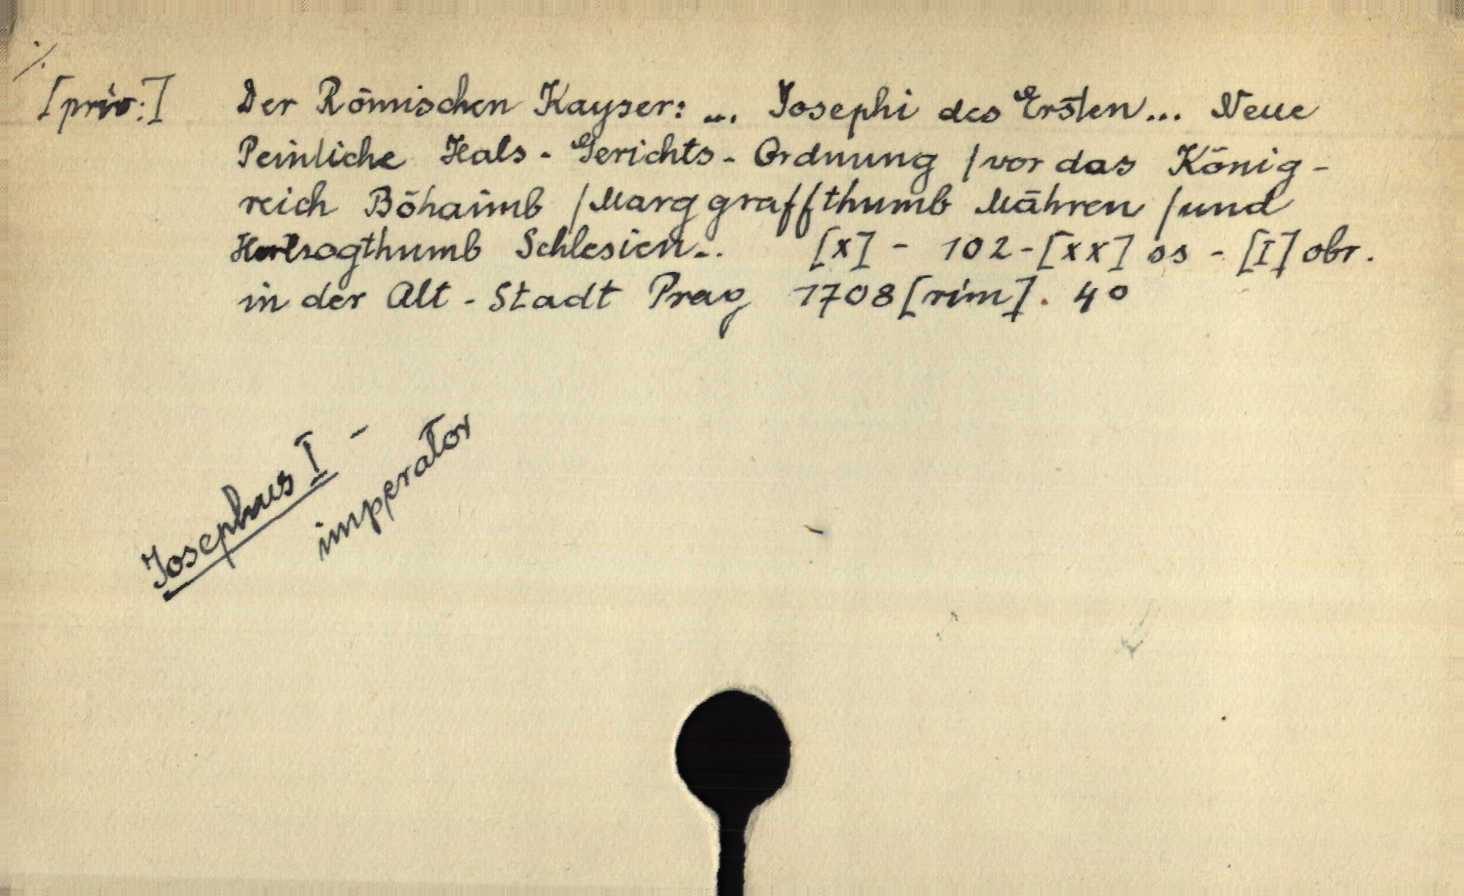 ·/.
[priv:] Der Römischen Kayser: ... Josephi des Ersten... Neue
Peinliche Hals-Gerichts-Ordnung /vor das König-
reich Böhaimb /Marggraffthumb Mähren /und
Hertzogthumb Schlesien... [x] - 102-[xx] ss - [I] obr.
in der Alt-Stadt Prag 1708 [rím]. 4°
Josephus I -
imperator